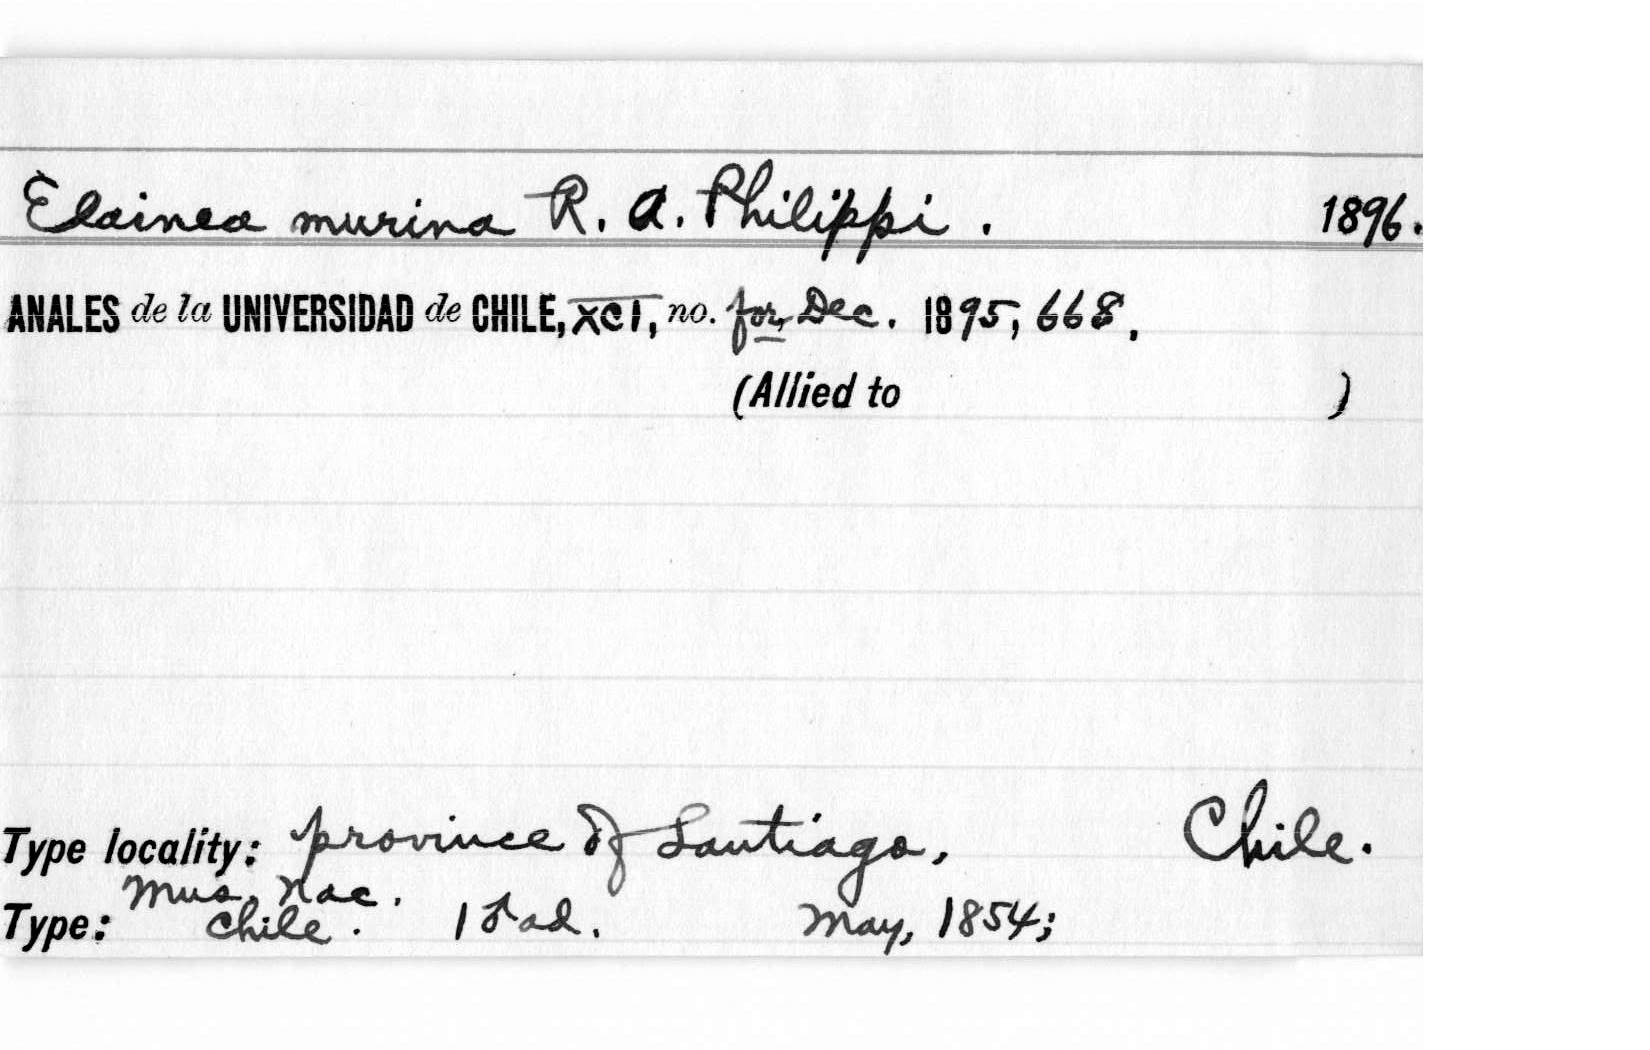 Elainea murina R. A. Philippi. 1896.
ANALES de la UNIVERSIDAD de CHILE, XCI, no. for Dec. 1895, 668,
(Allied to )
Type locality: province of Santiago, Chile.
Mus. Nac.
Type: Chile. 1 ♂ ad. May, 1854;